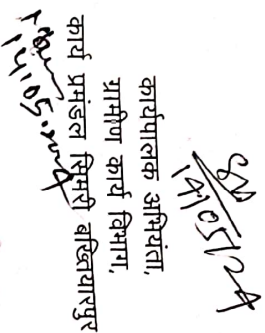 14/05/24
कार्यपालक अभियंता,
ग्रामीण कार्य विभाग,
कार्य प्रमंडल सिमरी बख्तियारपुर
14.05.2024